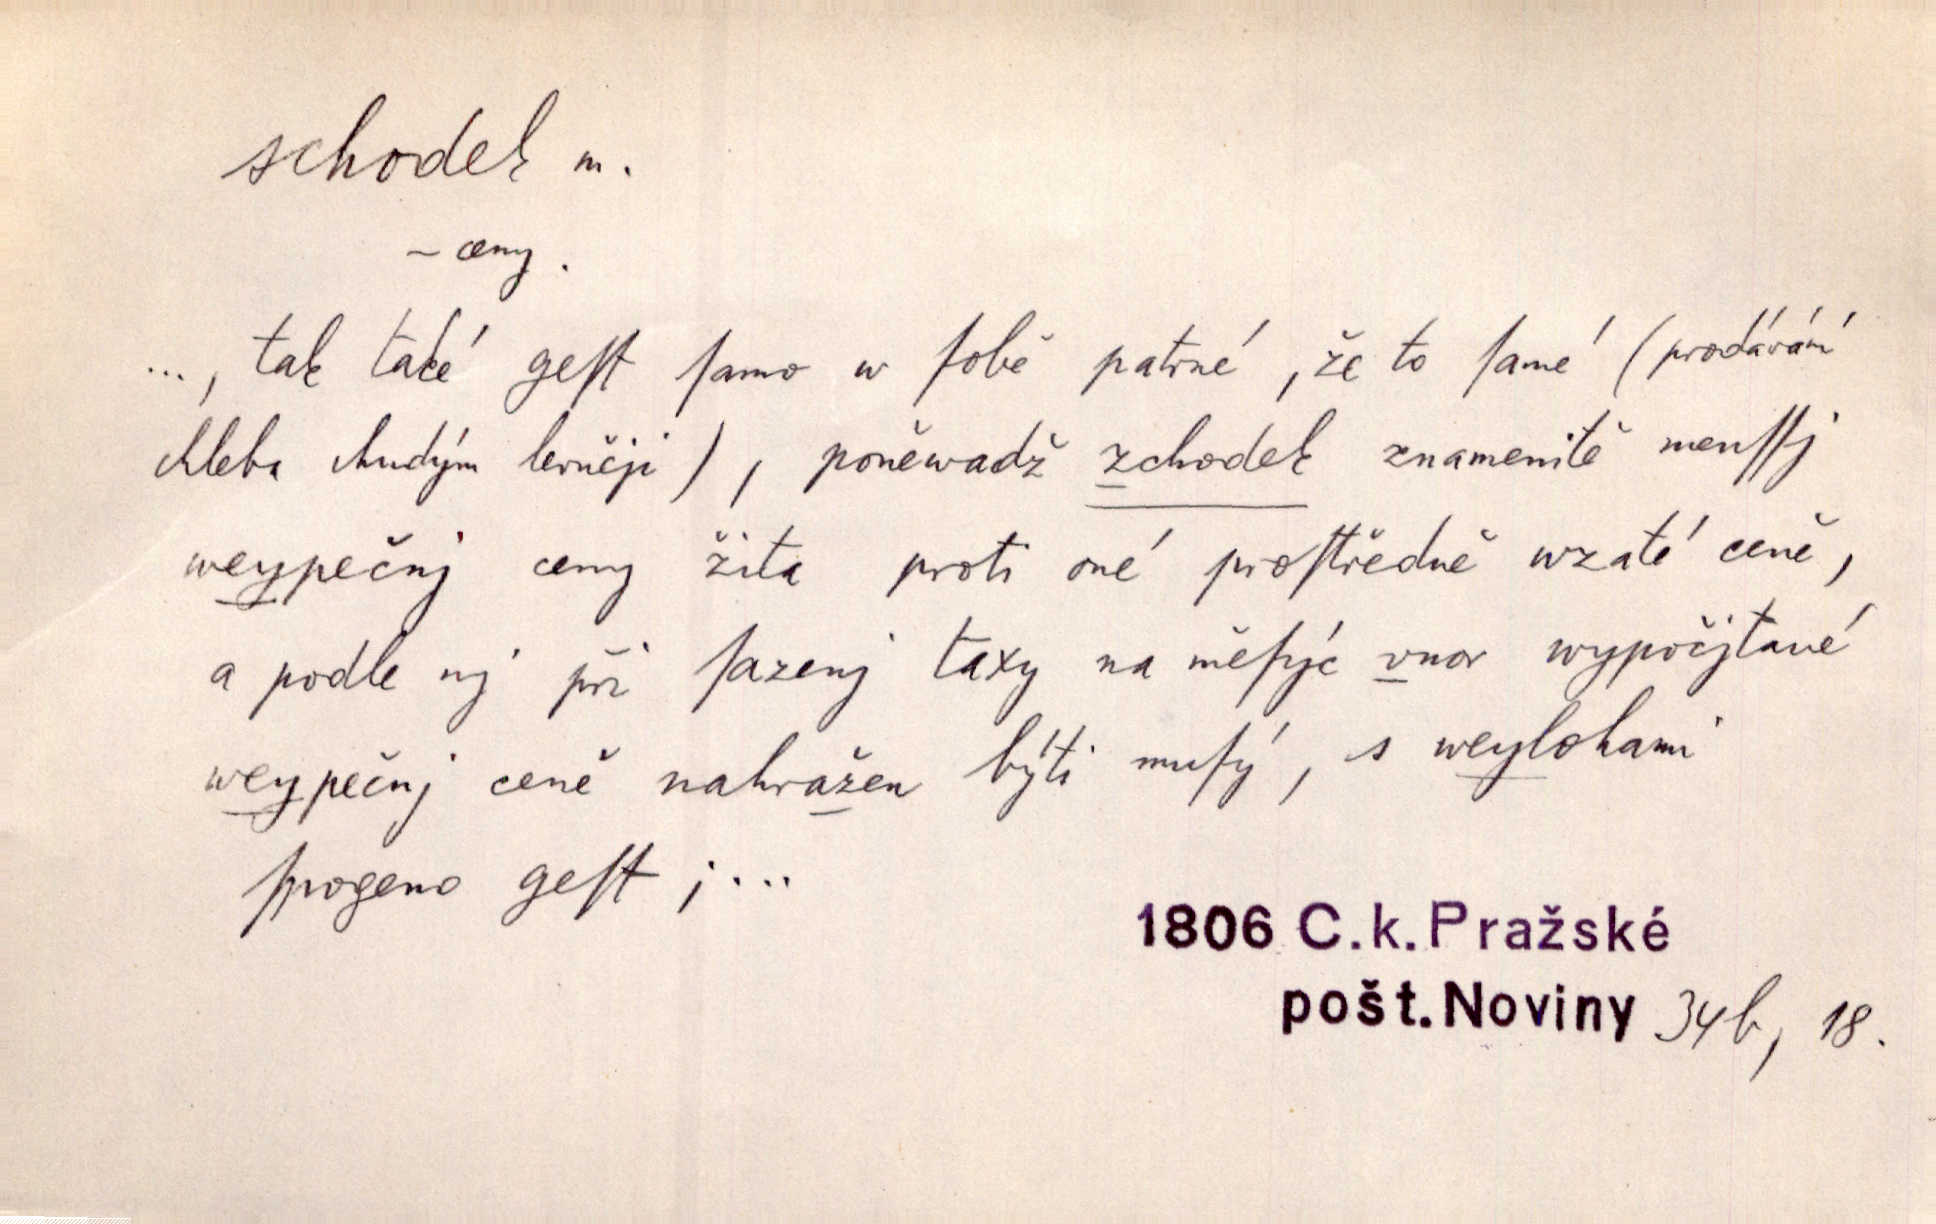 schodek m.
~ ceny.
..., tak také geſt ſamo w ſobě patrné, že to ſamé (prodávání
chleba chudým levněji), poněwadž zchodek znamenitě menſſj
weypečnj ceny žita proti oné proſtředně wzaté ceně,
a podle nj při ſazenj taxy na měſýc vnor wypočjtané
weypečnj ceně nahražen býti muſý, s weylohami
ſpogeno geſt ; ...
1806 C.k. Pražské
pošt. Noviny 34b, 18.